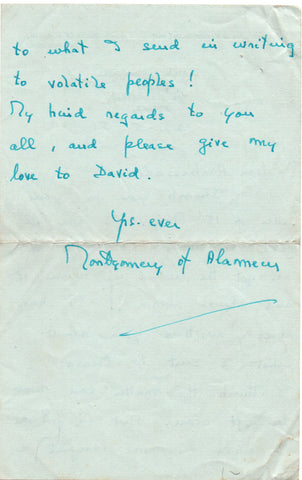 to what I send in writing
to volatile peoples!
My kind regards to you
all, and please give my
love to David.
Yrs. ever
Montgomery of Alamein